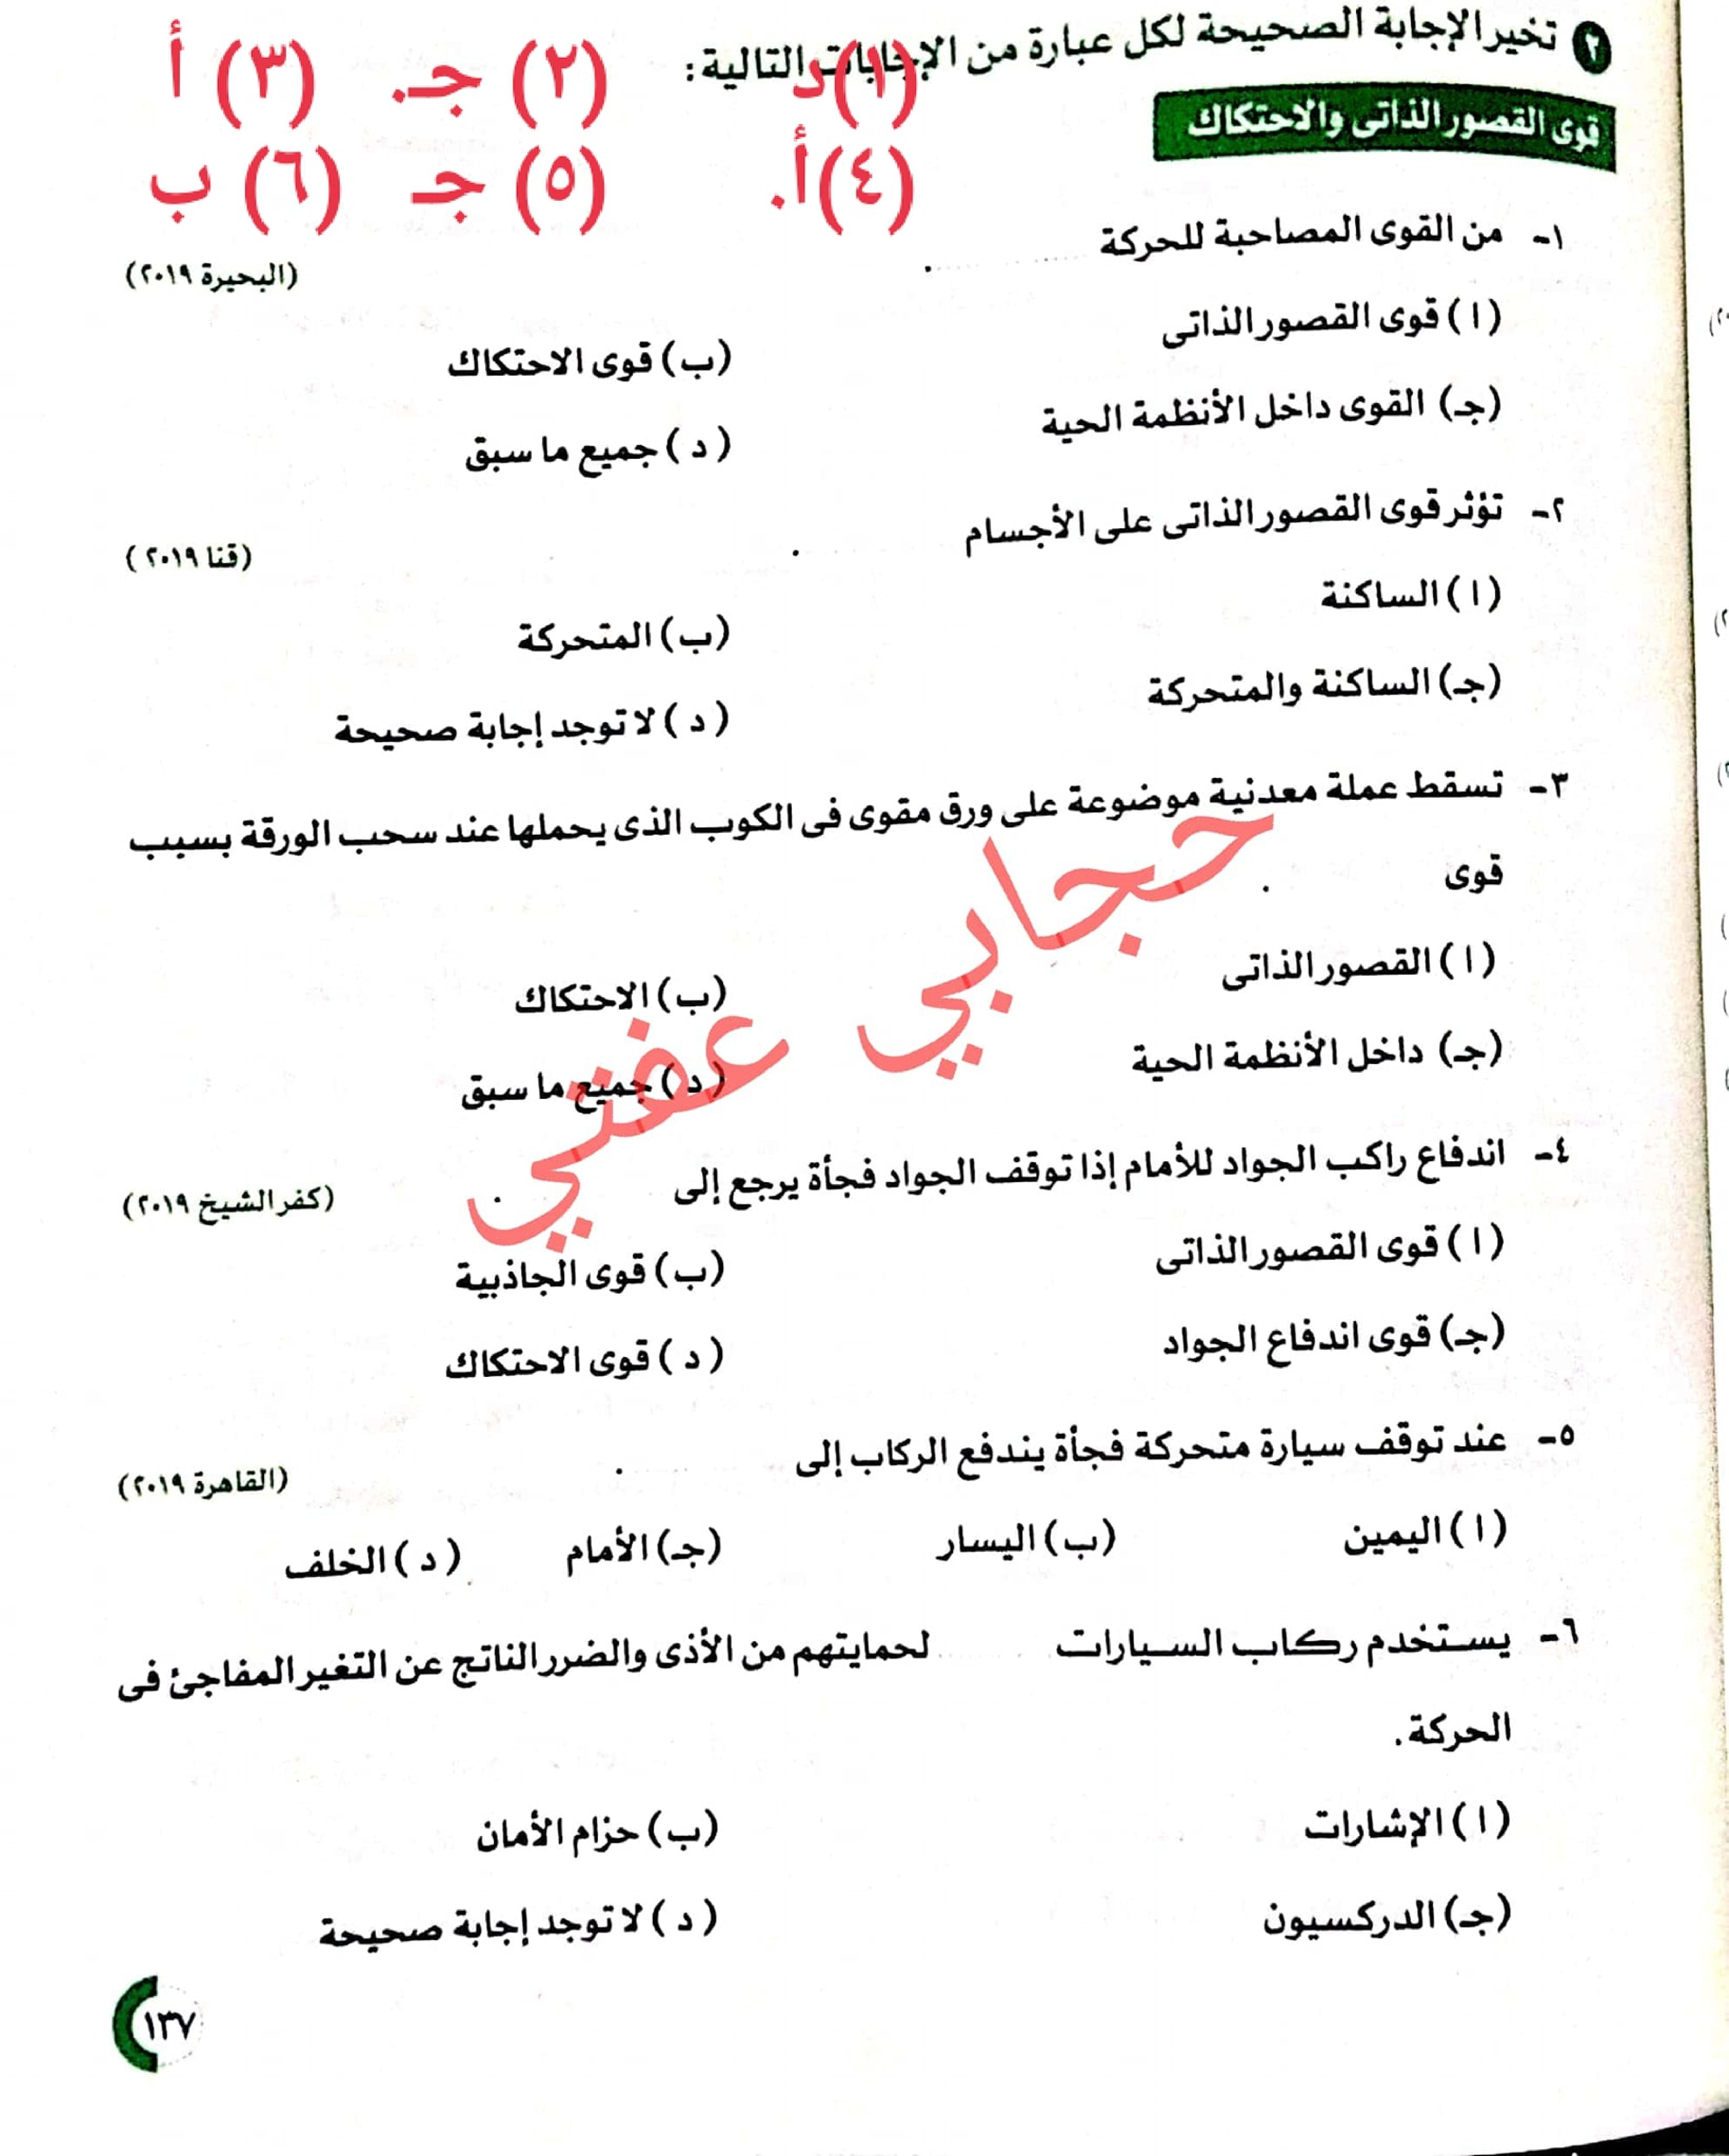 ٢ تخير الإجابة الصحيحة لكل عبارة من الإجابات التالية:
(١) د (٢) جـ. (٣) أ
قوى القصور الذاتى والاحتكاك
(٤) أ. (٥) جـ (٦) ب
١- من القوى المصاحبة للحركة .......... . (البحيرة ٢٠١٩)
(ا) قوى القصور الذاتى (ب) قوى الاحتكاك
(جـ) القوى داخل الأنظمة الحية (د) جميع ما سبق
٢- تؤثر قوى القصور الذاتى على الأجسام . (قنا ٢٠١٩)
(ا) الساكنة (ب) المتحركة
(جـ) الساكنة والمتحركة (د) لا توجد إجابة صحيحة
٣- تسقط عملة معدنية موضوعة على ورق مقوى فى الكوب الذى يحملها عند سحب الورقة بسبب
قوى .
(ا) القصور الذاتى (ب) الاحتكاك
(جـ) داخل الأنظمة الحية (د) جميع ما سبق
حجابي عفتي
٤- اندفاع راكب الجواد للأمام إذا توقف الجواد فجأة يرجع إلى . (كفر الشيخ ٢٠١٩)
(ا) قوى القصور الذاتى (ب) قوى الجاذبية
(جـ) قوى اندفاع الجواد (د) قوى الاحتكاك
٥- عند توقف سيارة متحركة فجأة يندفع الركاب إلى . (القاهرة ٢٠١٩)
(ا) اليمين (ب) اليسار (جـ) الأمام (د) الخلف
٦- يستخدم ركاب السيارات .......... لحمايتهم من الأذى والضرر الناتج عن التغير المفاجئ فى
الحركة.
(ا) الإشارات (ب) حزام الأمان
(جـ) الدركسيون (د) لا توجد إجابة صحيحة
١٣٧